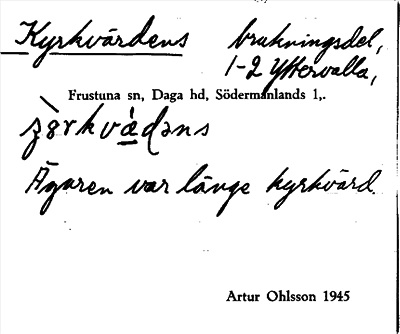 Kyrkvärdens brukningsdel,
1-2 Yttervalla,
Frustuna sn, Daga hd, Södermanlands l,.
Ägaren var länge kyrkvärd.
Artur Ohlsson 1945